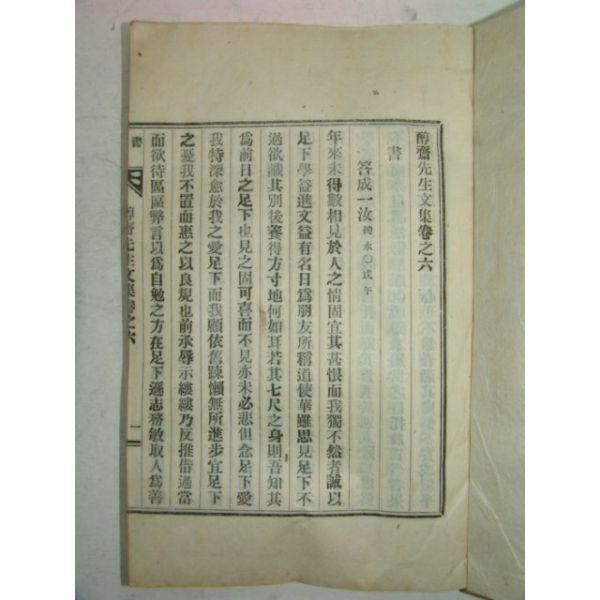 醇齋先生文集卷之六
書
答成一汝 純永○戊午
年來未得數相見於人之情固宜其甚恨而我獨不然者誠以
足下學益進文益有名日爲朋友所稱道使華雖思見足下不
過欲識其別後賽得方寸地何如耳若其七尺之身則吾知其
爲前日之足下也見之固可喜而不見亦未必悲但念足下愛
我特深愈於我之愛足下而我顧依舊踈懶無所進步宜足下
之憂我不置而惠之以良規也前承辱示縷縷乃反推借過當
而欲待區區弊言以爲自勉之方在足下遜志務敏取人爲善
書
醇齋先生文集卷之六
一